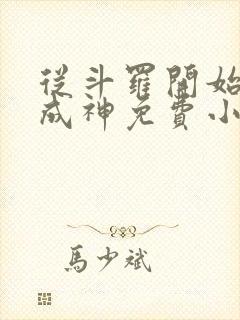 從斗羅開始
成神免費小
馬少斌